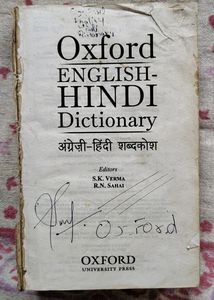 Oxford
ENGLISH-
HINDI
Dictionary
अंग्रेज़ी-हिंदी शब्दकोश
Editors
S.K. VERMA
R.N. SAHAI
Oxford
OXFORD
UNIVERSITY PRESS